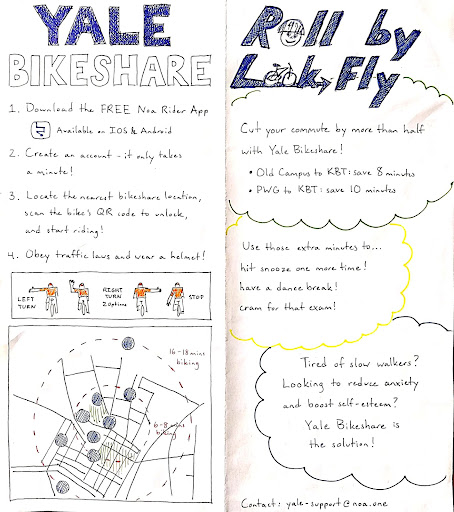 YALE
BIKESHARE
1. Download the FREE Noa Rider App
Available on IOS & Android
2. Create an account - it only takes
a minute!
3. Locate the nearest bikeshare location,
scan the bike's QR code to unlock,
and start riding!
4. Obey traffic laws and wear a helmet!
LEFT
TURN
RIGHT
TURN
2 options
STOP
16-18 mins
biking
6-8 mins
biking
Roll by
Look Fly
Cut your commute by more than half
with Yale Bikeshare!
• Old Campus to KBT: save 8 minutes
• PWG to KBT: save 10 minutes
Use those extra minutes to...
hit snooze one more time!
have a dance break!
cram for that exam!
Tired of slow walkers?
Looking to reduce anxiety
and boost self-esteem?
Yale Bikeshare is
the solution!
Contact: yale-support@noa.one